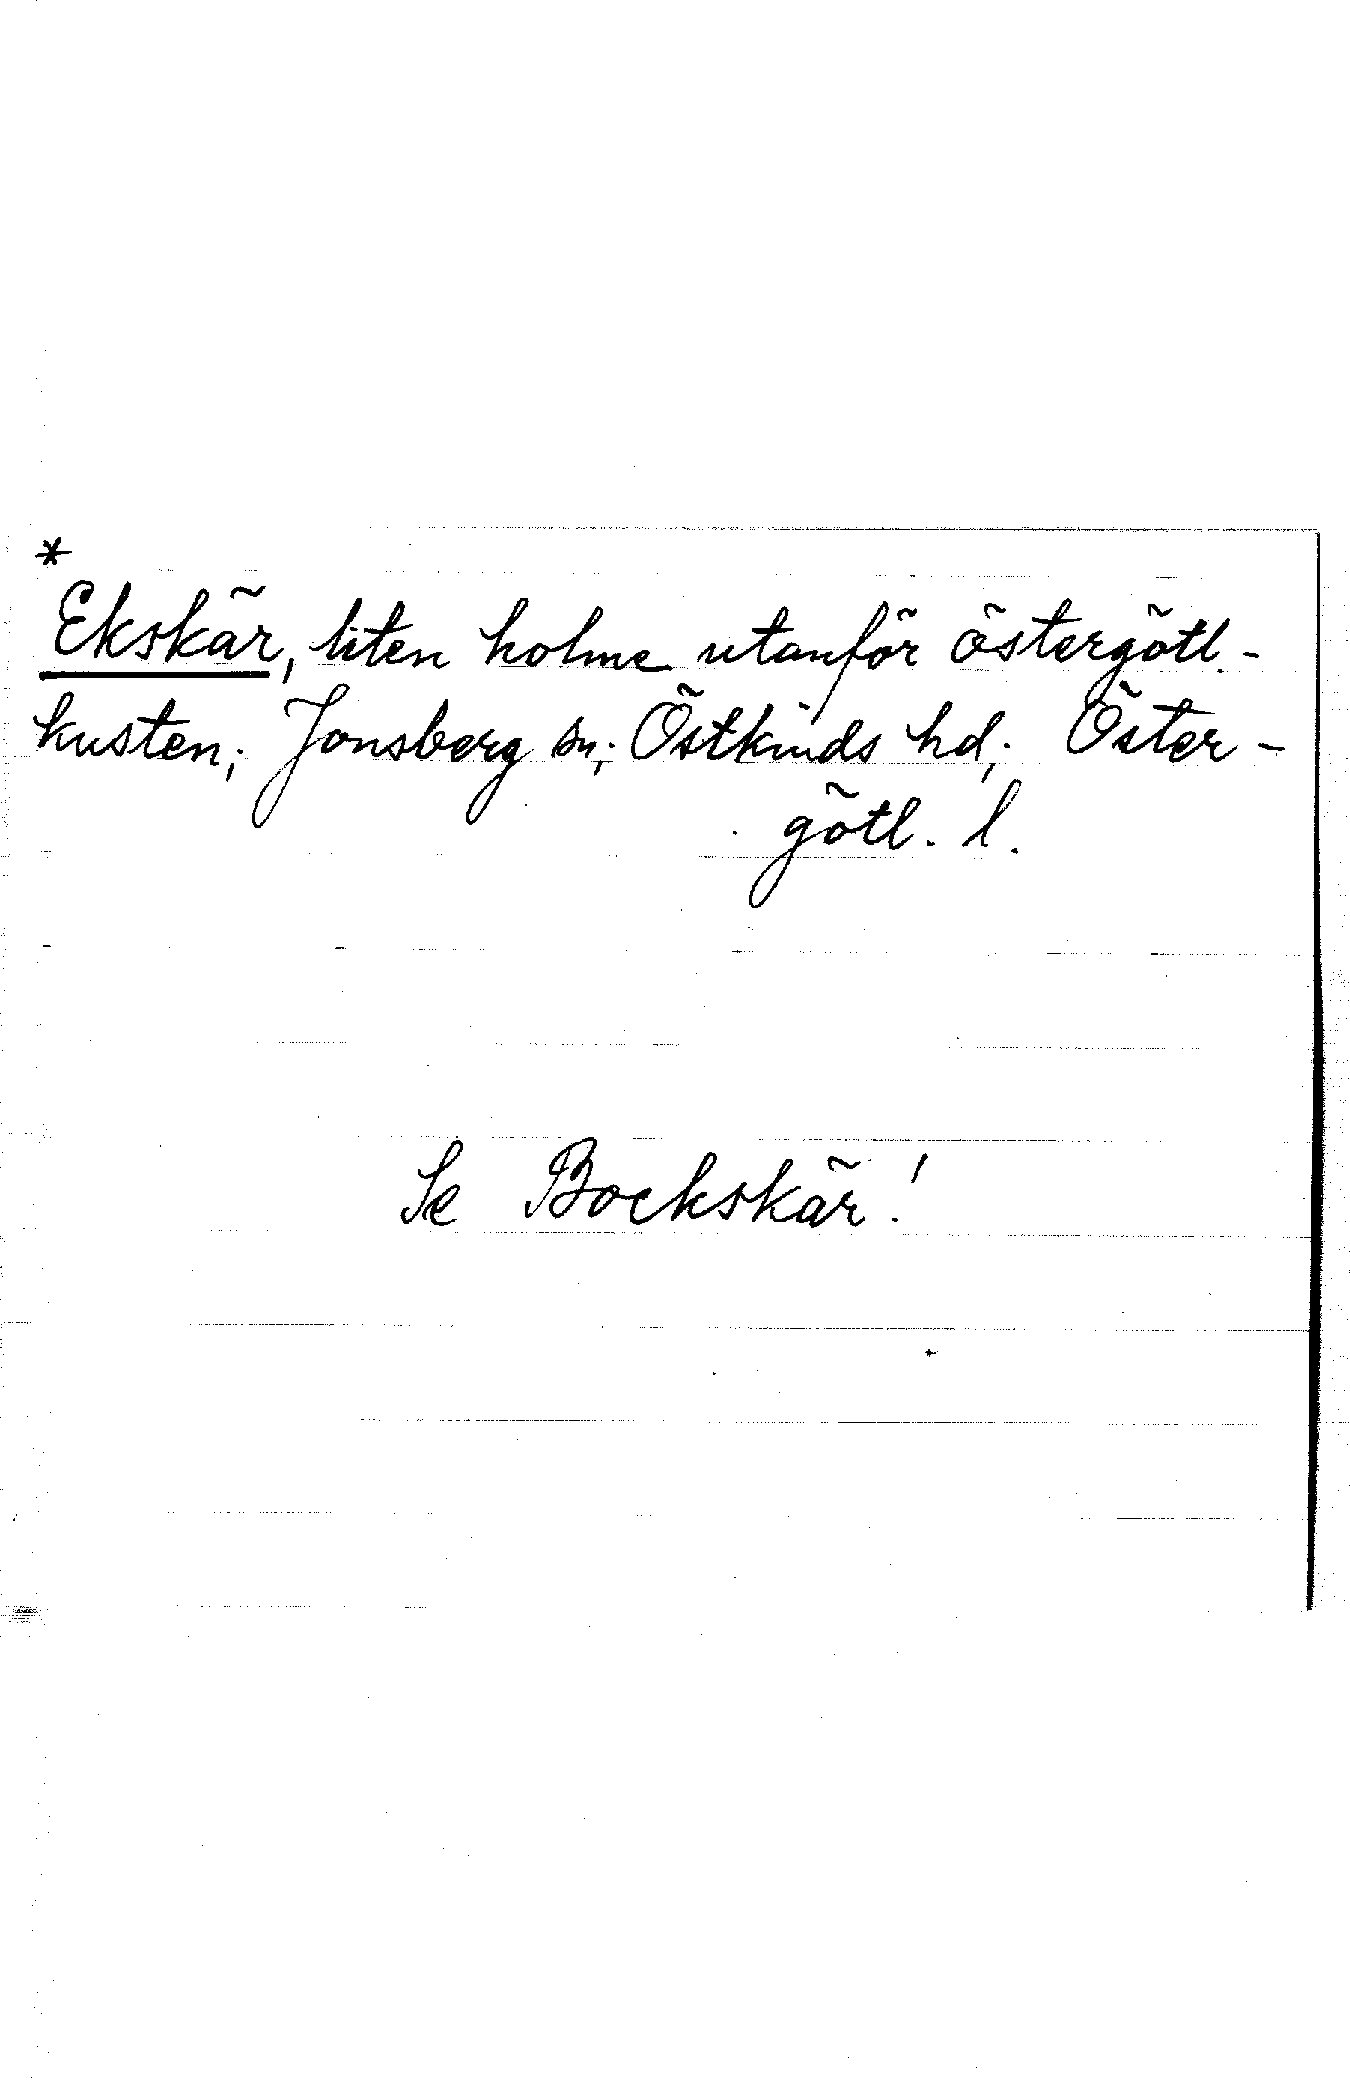 *
Ekskär, liten holme utanför östergötl.-
kusten; Jonsberg sn; Östkinds hd; Öster-
götl. l.
Se Bockskär!